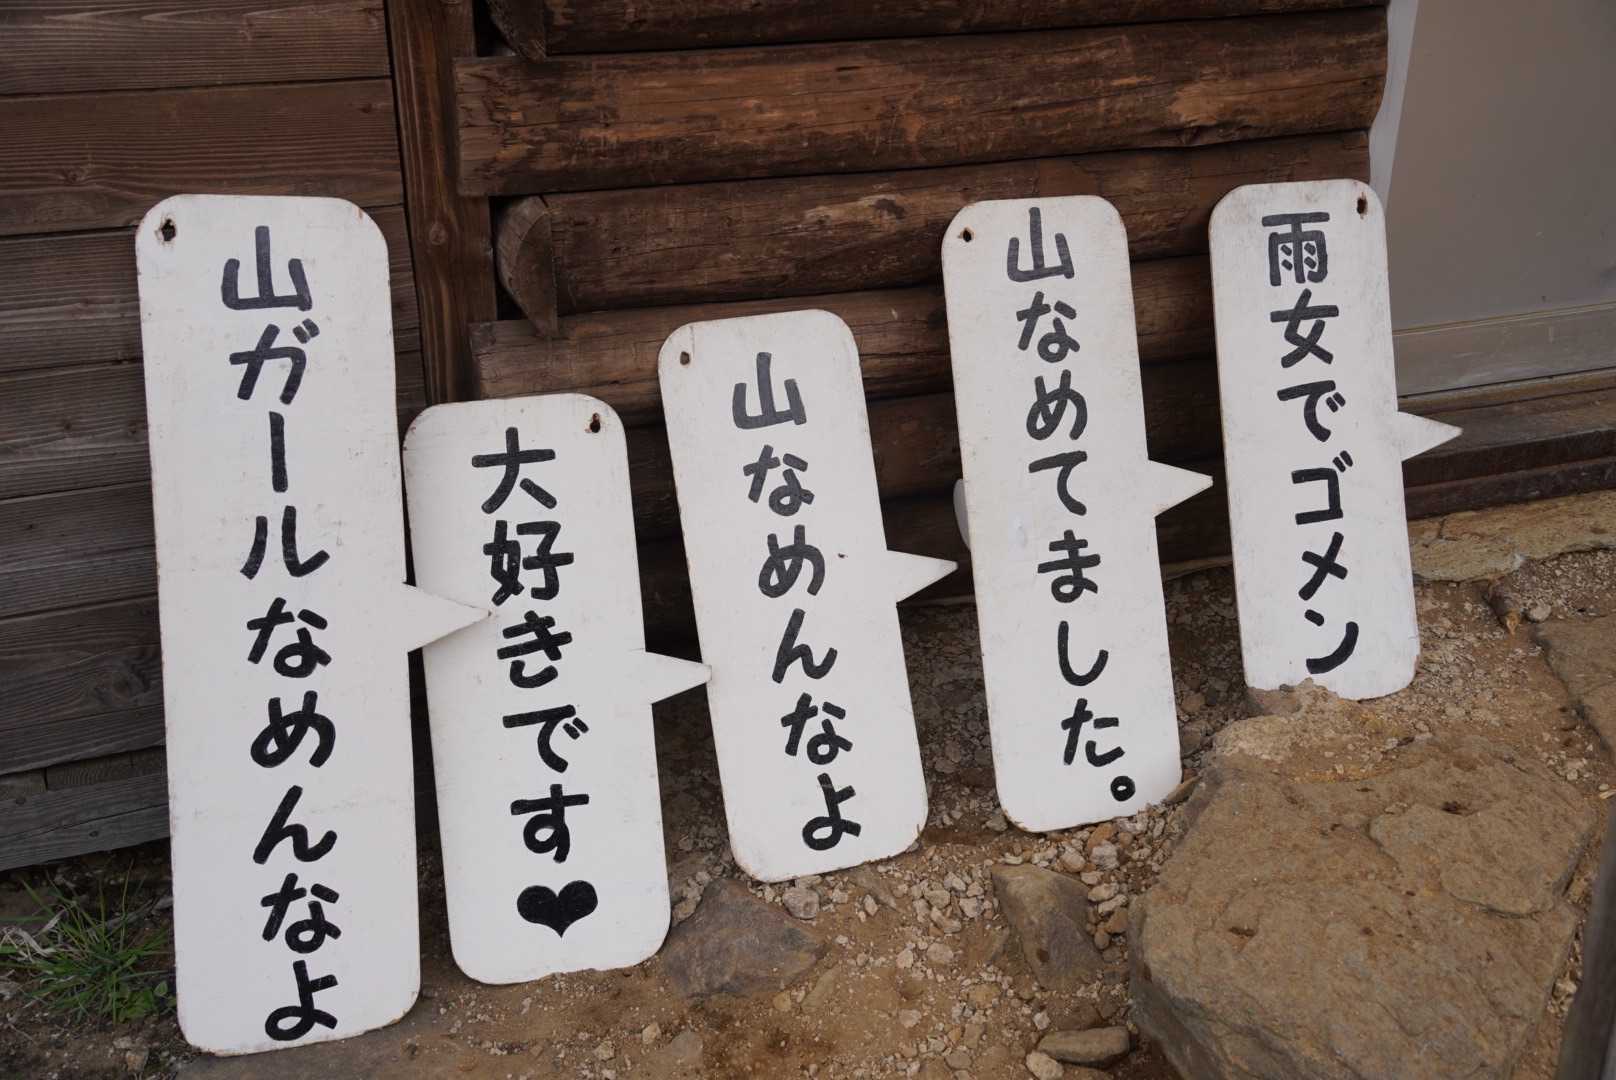 山ガールなめんなよ
大好きです♥
山なめんなよ
山なめてました。
雨女でゴメン